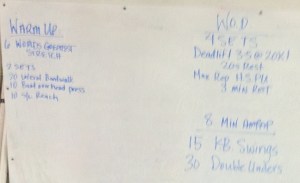 Warm Up
6 WORLDS GREATEST
STRETCH
2 SETS
20
10 Beat overhead press
10 Reach
WOD
4 SETS
Deadlift 3-5 @ 20X1
Rest
Max Rep H.S.P.U
min Rest
8 Min AMRAP
15 KB Swings
30 Double Unders